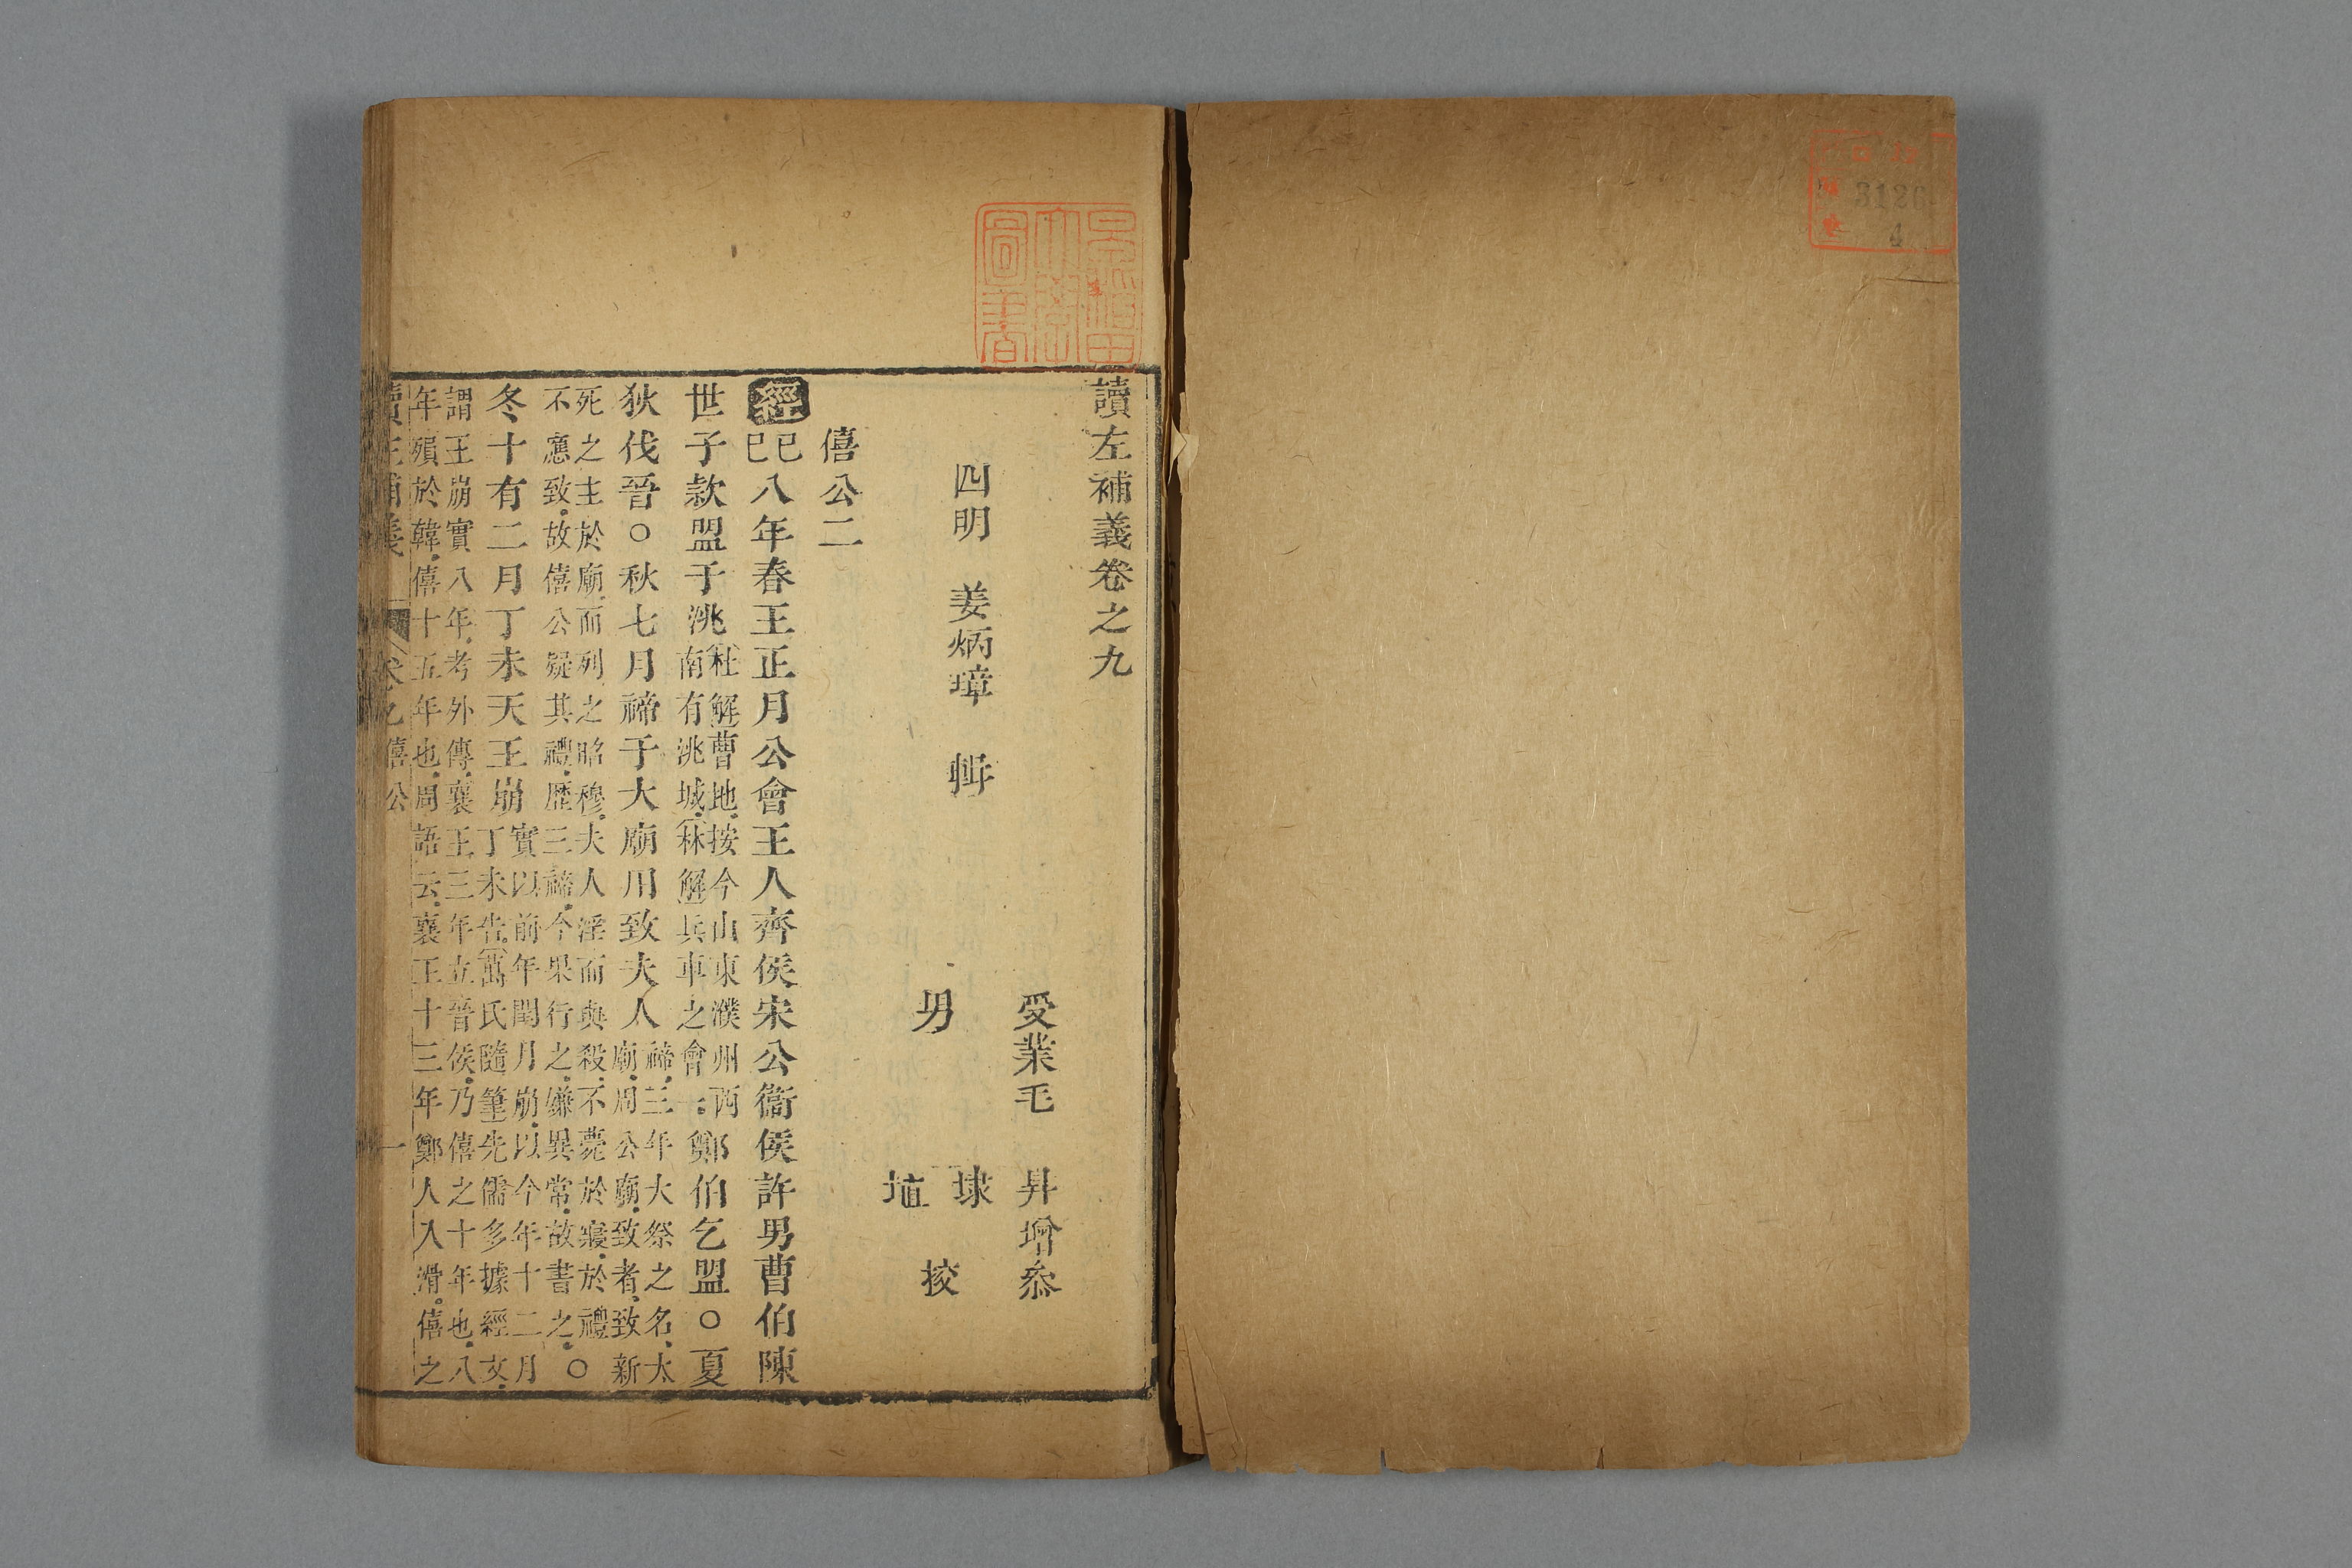 3126
4
讀左補義卷之九
受業毛　昇增叅
四明　姜炳璋　輯
男　埭　挍
埴
僖公二
經己巳八年春王正月公會王人齊侯宋公衞侯許男曹伯陳
世子款盟于洮杜解曹地按今山東濮州西南有洮城林解兵車之會一鄭伯乞盟○夏
狄伐晉○秋七月禘于大廟用致夫人禘三年大祭之名太廟周公廟致者致新
死之主於廟而列之昭穆夫人淫而與殺不薨於寢於禮
不應致故僖公疑其禮歷三禘今果行之嫌異常故書之○
冬十有二月丁未天王崩實以前年閏月崩以今年十二月丁未告萬氏隨筆先儒多據經文
謂王崩實八年考外傳襄王三年立晉侯乃僖之十年也八
年殞於韓僖十五年也周語云襄王十三年鄭人入滑僖之
讀左補義　僖公　一